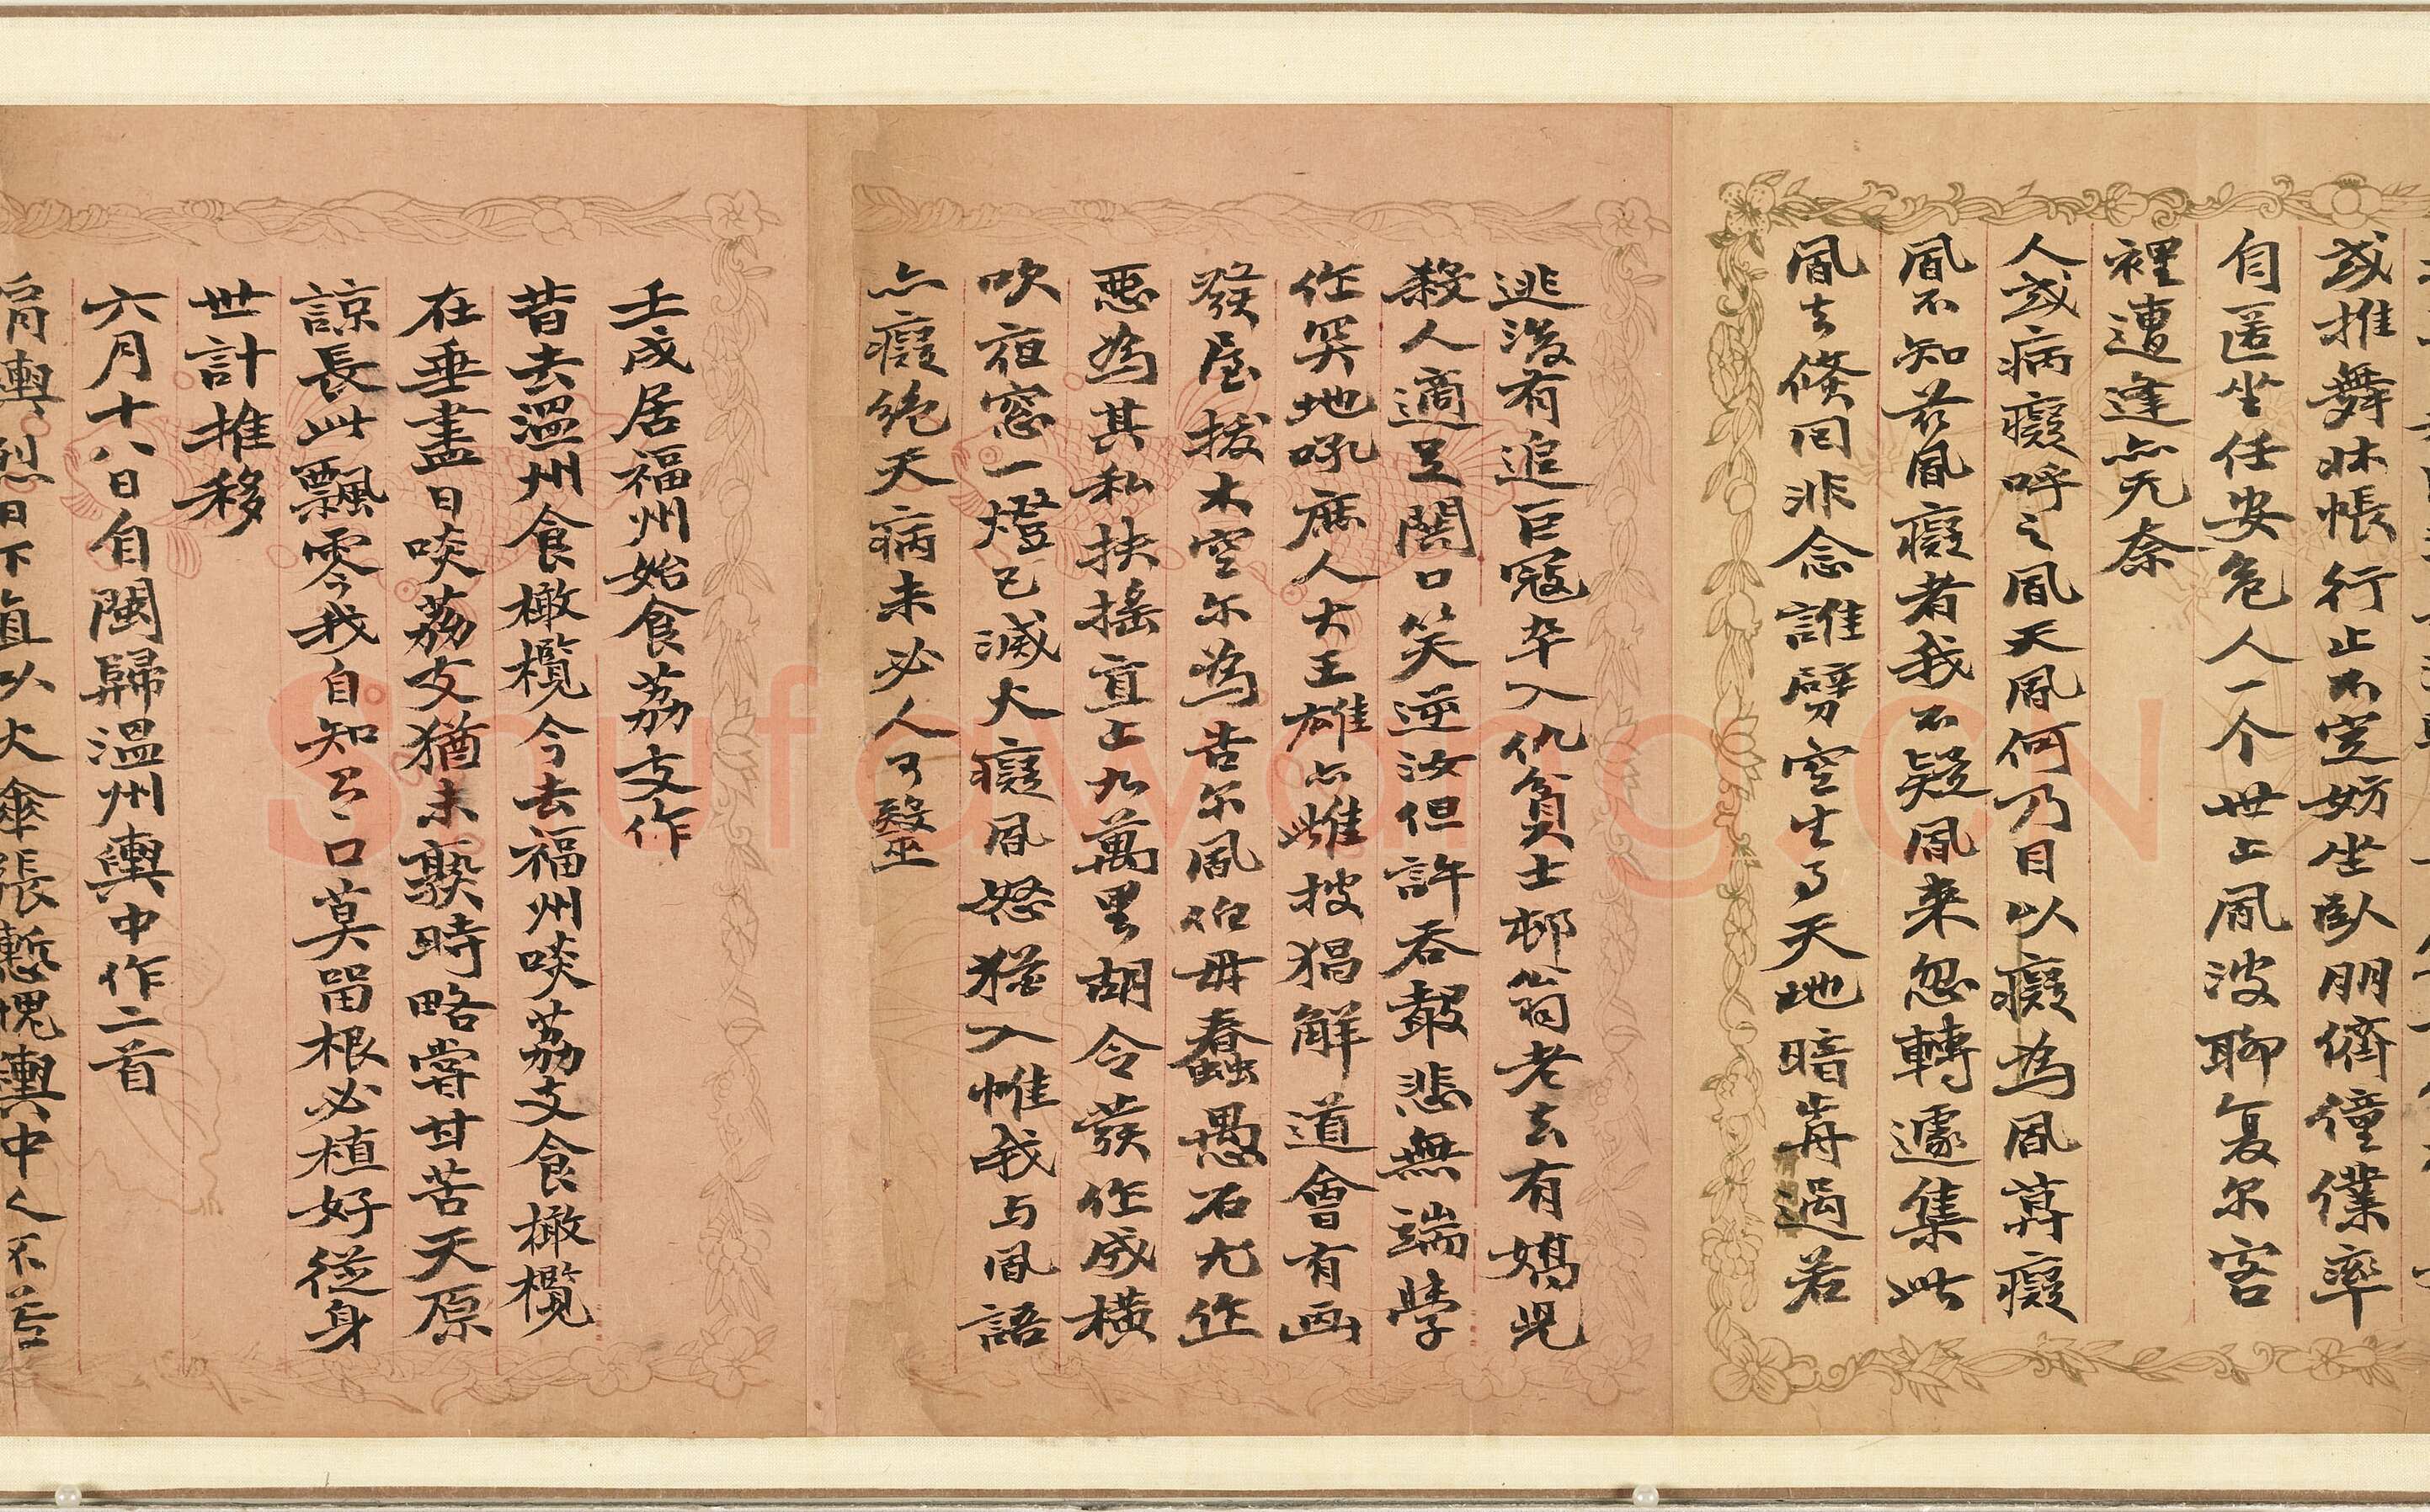 或推舞牀帳行止不定妨坐臥朋儕僮僕率
自匿坐任安危人一个世上風波聊复尔客
裡遭逢亦无奈
人或病癡呼之風天風何乃目以癡為風算癡
風不知於風癡者我不疑風來忽轉遽集此
風去倏回非念誰劈空生了天地暗再過若
逃後有追巨寇卒入仇貧士邨翁老去有嬌兒
殺人適足闊口笑逆汝但許吞聲悲無端學
作哭地吼庶人大王雄亦雌披猖解道會有西
發屋拔木空尔為告尔風伯毋蠢愚石尤作
惡為其私扶搖直上九萬里胡令發作威橫
吹窗一燈已滅犬癡風怒猶入惟我与風語
亦癡絕天病未必人可毉
壬戌居福州始食荔支作
昔去溫州食橄欖今去福州啖荔支食橄欖
在垂盡日啖荔支猶未暴時略嘗甘苦天原
諒長此飄零我自知習口莫留根必植好從身
世計推移
六月十八日自閩歸溫州輿中作二首
烈日下直以火傘張慙愧輿中人不苦
Shufawang.CN